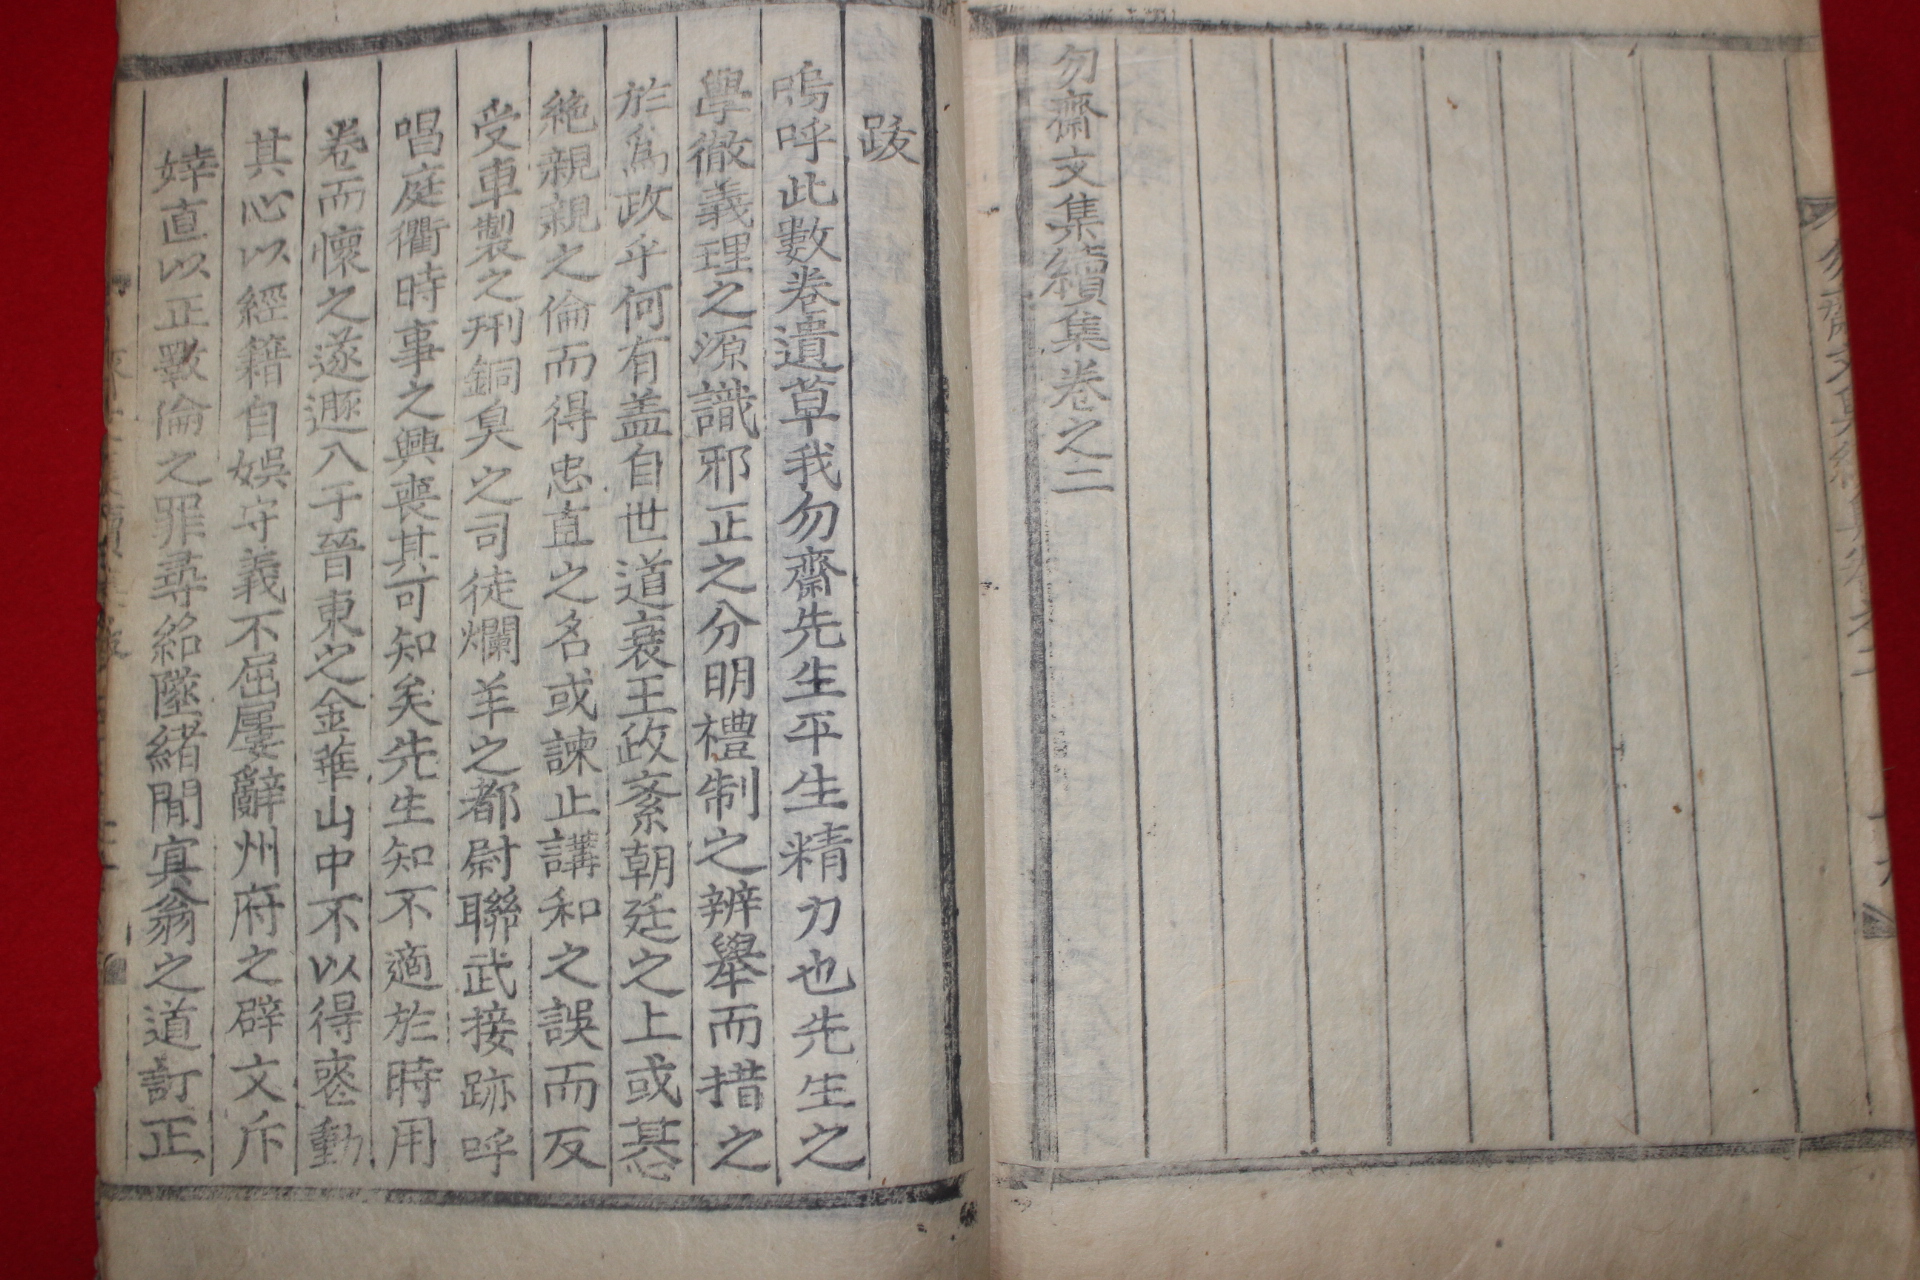 勿齋文集續集卷之二
跋
嗚呼此數卷遺草我勿齋先生平生精力也先生之
學徹義理之源識邪正之分明禮制之辨擧而措之
於爲政乎何有盖自世道衰王政紊朝廷之上或甚
絶親親之倫而得忠直之名或諫止講和之誤而反
受車製之刑銅臭之司徒爛羊之都尉聯武接跡呼
唱庭衢時事之興喪其可知矣先生知不適於時用
卷而懷之遂遯入于晉東之金華山中不以得喪動
其心以經籍自娛守義不屈屢辭州府之辟文斥
婞直以正斁倫之罪尋紹墜緖閒寘翁之道訂正
勿齋文集續集卷之二